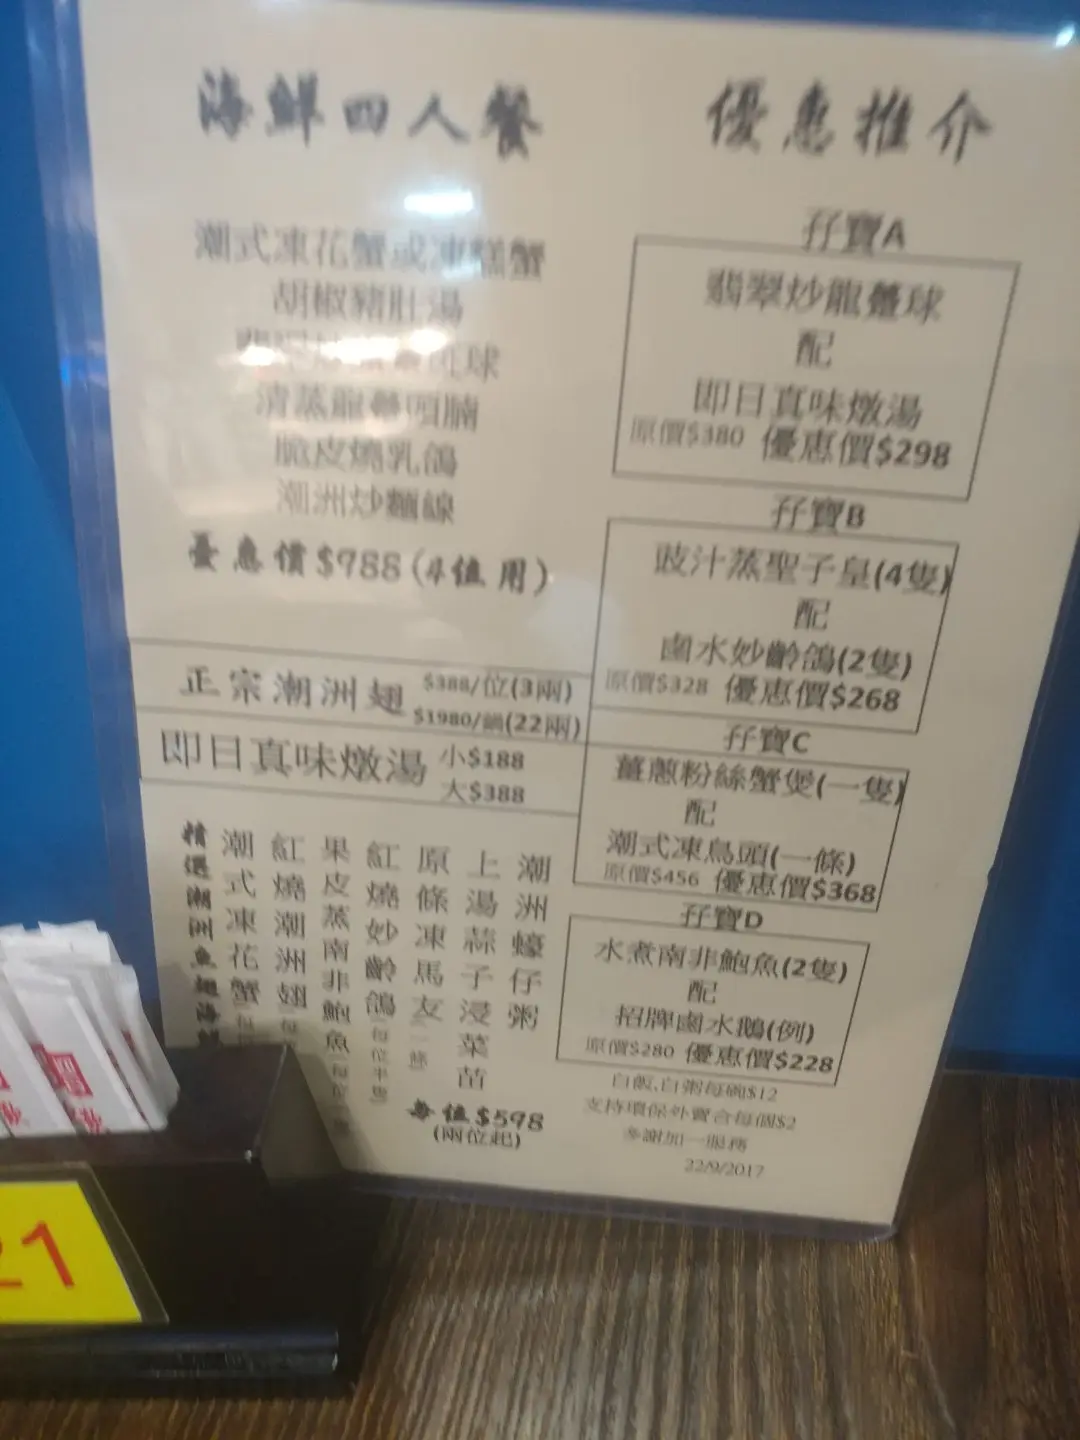 海鮮四人餐
潮式凍花蟹或凍糕蟹
胡椒豬肚湯
球
清蒸龍躉頭腩
脆皮燒乳鴿
潮洲炒麵線
優惠價$988(4位用)
正宗潮洲翅 $388/位(3兩)
$1980/鍋(22兩)
即日真味燉湯 小$188
大$388
精選潮洲魚翅海鮮
潮式凍花蟹
紅燒潮洲翅
果皮蒸南非鮑魚
紅燒妙齡鴿(每位半隻)
原條凍馬友(一條)
上湯蒜子浸菜苗
潮洲蠔仔粥
每位$598
(兩位起)
優惠推介
孖寶A
翡翠炒龍躉球
配
即日真味燉湯
原價$380 優惠價$298
孖寶B
豉汁蒸聖子皇(4隻)
配
鹵水妙齡鴿(2隻)
原價$328 優惠價$268
孖寶C
薑蔥粉絲蟹煲(一隻)
配
潮式凍烏頭(一條)
原價$456 優惠價$368
孖寶D
水煮南非鮑魚(2隻)
配
招牌鹵水鵝(例)
原價$280 優惠價$228
白飯,白粥每碗$12
支持環保外賣合每個$2
多謝加一服務
22/9/2017
21